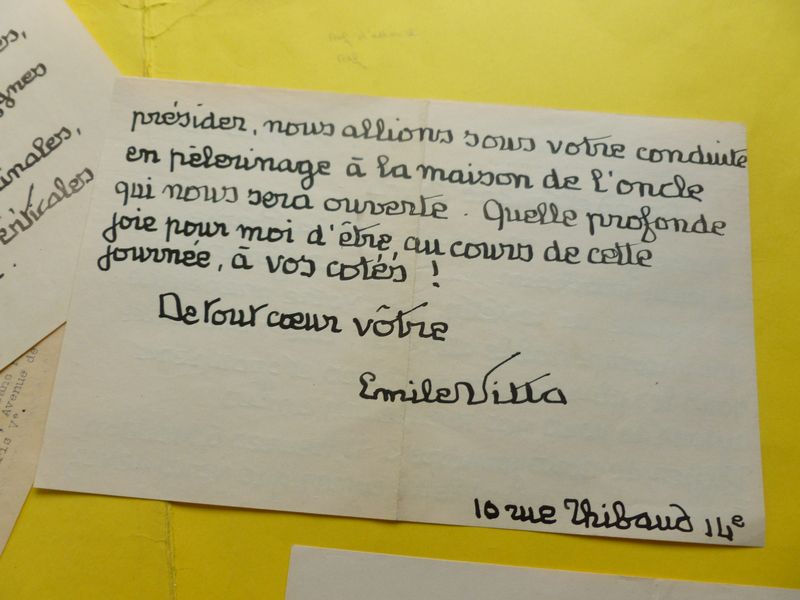 présider, nous allions sous votre conduite
en pèlerinage à la maison de l'oncle
qui nous sera ouverte. Quelle profonde
joie pour moi d'être, au cours de cette
journée, à vos cotés !
De tout cœur vôtre
Emile Vitta
10 rue Thibaud 14e
Avenue de